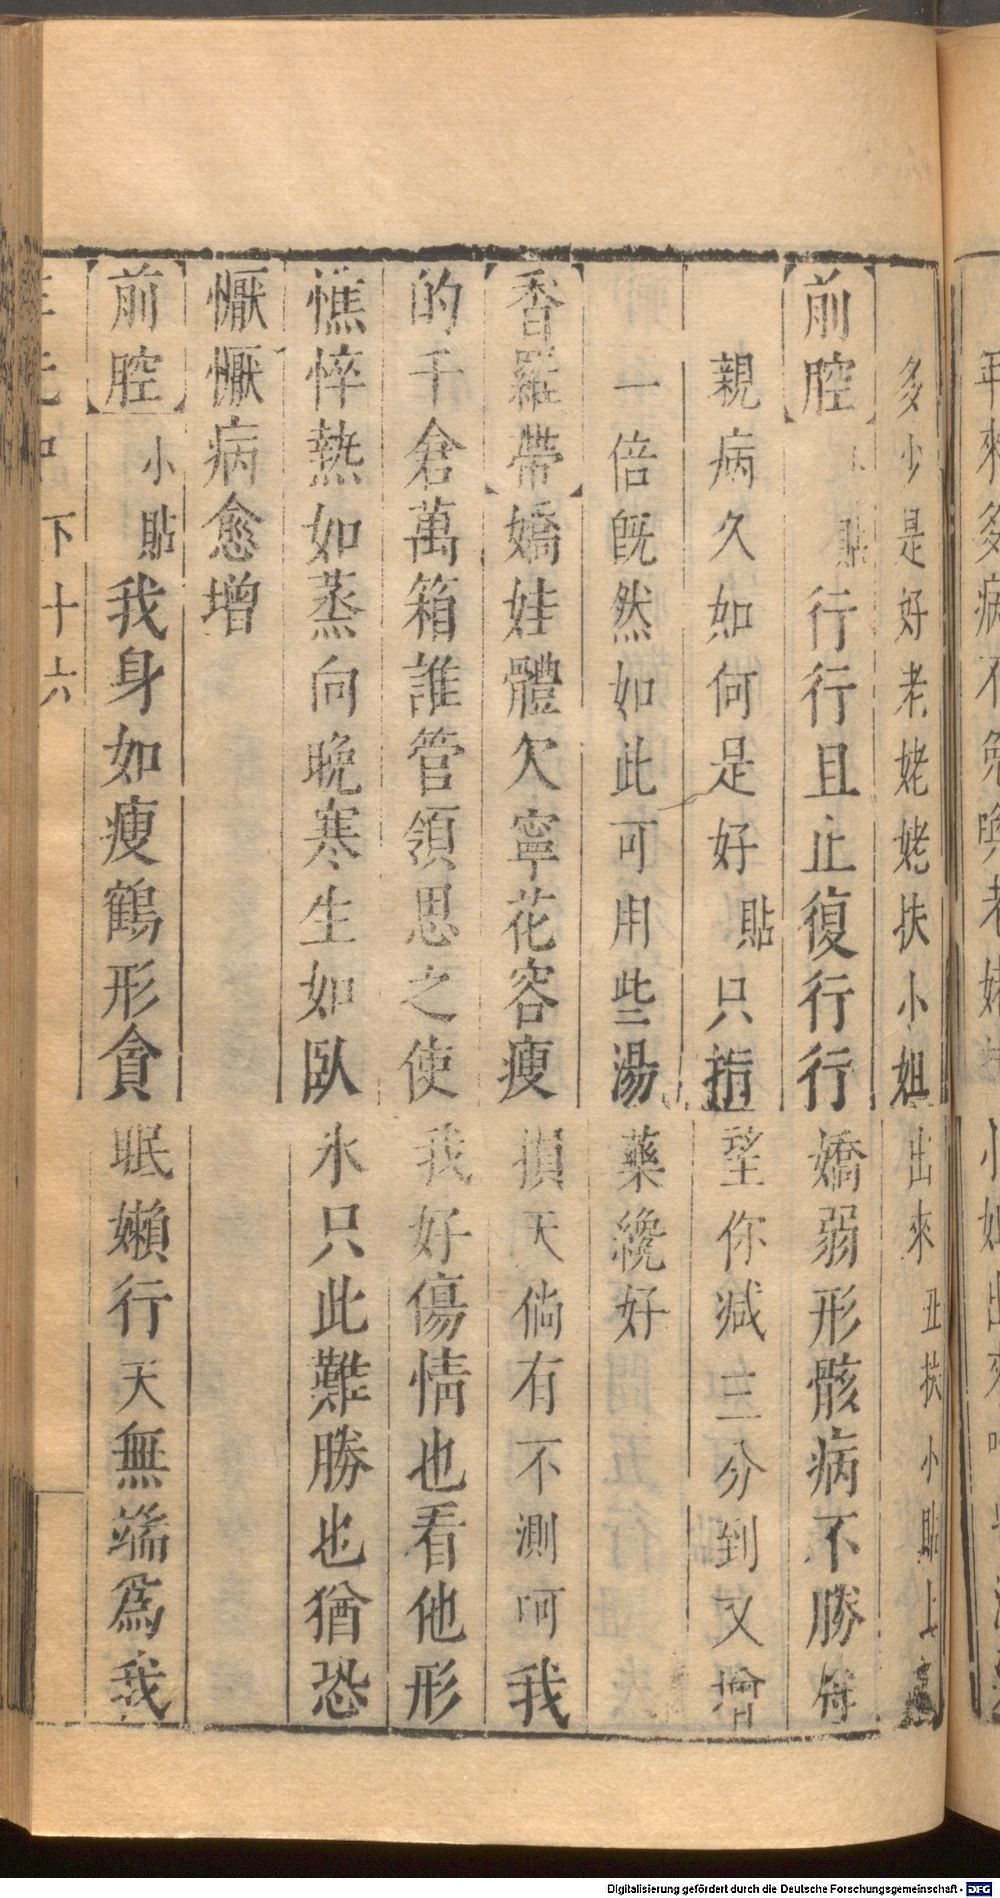 年來多病不免喚老姥
多少是好老姥姥扶小姐出來丑扶小貼上
前腔貼行行且止復行行嬌弱形骸病不勝
親病久如何是好貼只指望你減三分到又增
一倍旣然如此可用些湯藥纔好
香羅帶嬌娃體欠寧花容瘦損天倘有不測呵我
的千倉萬箱誰管領思之使我好傷情也看他形
憔悴熱如蒸向晚寒生如臥氷只此難勝也猶恐
懨懨病愈增
前腔小貼我身如瘦鶴形貪眠嬾行天無端爲我
下十六
Digitalisierung gefördert durch die Deutsche Forschungsgemeinschaft - DFG